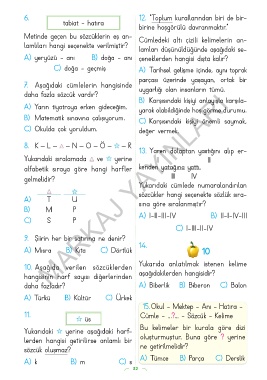 6.
tabiat – hatıra
Metinde geçen bu sözcüklerin eş an-
lamlıları hangi seçenekte verilmiştir?
A) yeryüzü - anı B) doğa - anı
C) doğa - geçmiş
7. Aşağıdaki cümlelerin hangisinde
daha fazla sözcük vardır?
A) Yarın tiyatroya erken gideceğim.
B) Matematik sınavına çalışıyorum.
C) Okulda çok yoruldum.
8. K – L – △ – N – O – Ö – ☆ – R
Yukarıdaki sıralamada △ ve ☆ yerine
alfabetik sıraya göre hangi harfler
gelmelidir?
△ ☆
A) T U
B) M P
C) S P
9. Şiirin her bir satırına ne denir?
A) Mısra B) Kıta C) Dörtlük
10. Aşağıda verilen sözcüklerden
hangisinin harf sayısı diğerlerinden
daha fazladır?
A) Türkü B) Kültür C) Ürkek
11.
☆ üs
Yukarıdaki ☆ yerine aşağıdaki harf-
lerden hangisi getirilirse anlamlı bir
sözcük oluşmaz?
A) k B) m C) s
12. "Toplum kurallarından biri de bir-
birine hoşgörülü davranmaktır."
Cümledeki altı çizili kelimelerin an-
lamları düşünüldüğünde aşağıdaki se-
çeneklerden hangisi dışta kalır?
A) Tarihsel gelişme içinde, aynı toprak
parçası üzerinde yaşayan, ortak bir
uygarlığı olan insanların tümü.
B) Karşısındaki kişiyi anlayışla karşıla-
yarak olabildiğinde hoş görme durumu.
C) Karşısındaki kişiyi önemli saymak,
değer vermek.
13.
kenden yatağına yattı.
III IV
Yukarıdaki cümlede numaralandırılan
sözcükler hangi seçenekte sözlük sıra-
sına göre sıralanmıştır?
A) I-II-III-IV B) II-I-IV-III
C) I-III-II-IV
14.
10
Yukarıda anlatılmak istenen kelime
aşağıdakilerden hangisidir?
A) Biberlik B) Biberon C) Balon
15. Okul - Mektep – Anı - Hatıra -
Cümle - ...?... - Sözcük - Kelime
Bu kelimeler bir kurala göre dizi
oluşturmuştur. Buna göre ? yerine
ne getirilmelidir?
A) Tümce B) Parça C) Derslik